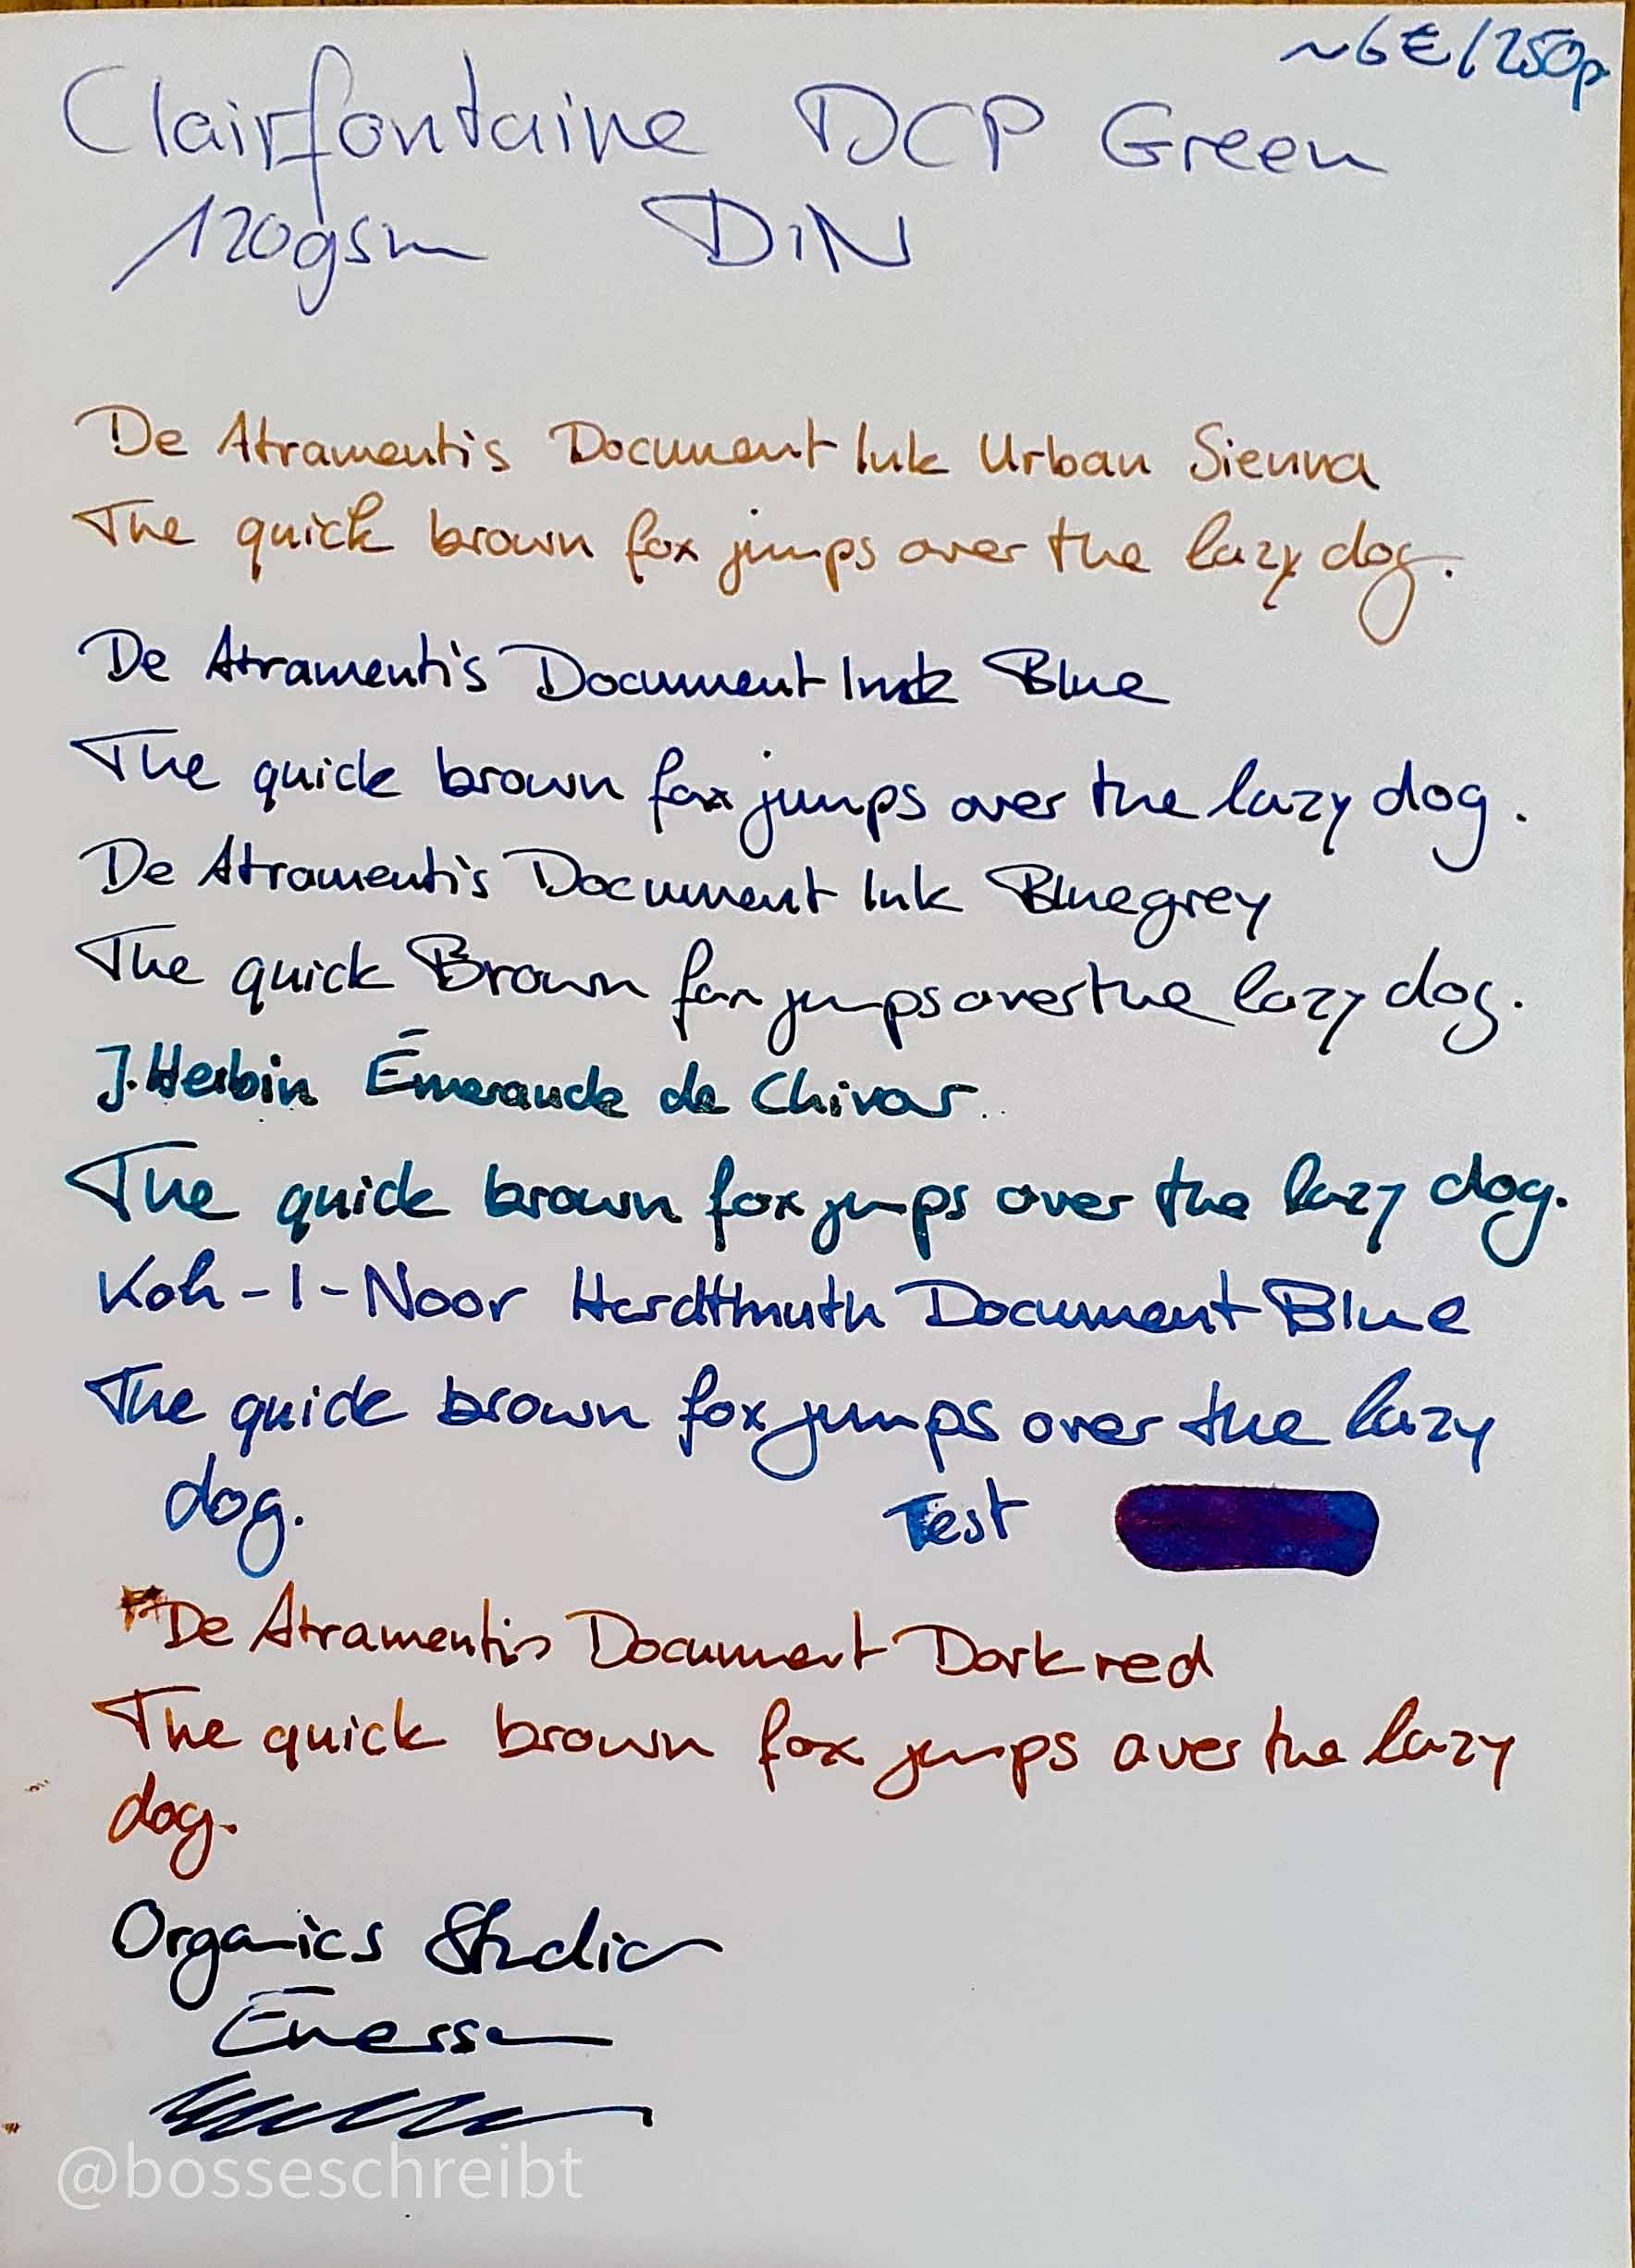 ~6€/250p
Clairfontaine DCP Green
120gsm DIN
De Atramentis Document Ink Urban Sienna
The quick brown fox jumps over the lazy dog.
De Atramentis Document Ink Blue
The quick brown fox jumps over the lazy dog.
De Atramentis Document Ink Bluegrey
The quick Brown fox jumps over the lazy dog.
J. Herbin Émeraude de Chivor
The quick brown fox jumps over the lazy dog.
Koh-I-Noor Hardtmuth Document Blue
The quick brown fox jumps over the lazy
dog. Test
De Atramentis Document Dark red
The quick brown fox jumps over the lazy
dog.
Organics Studio
@bosseschreibt